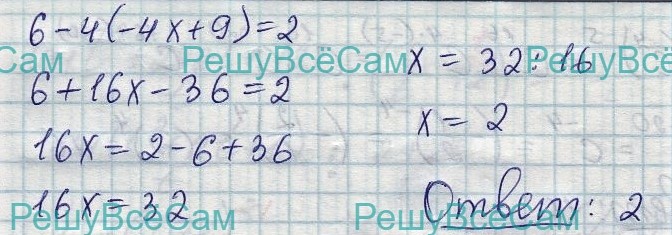 6-4(-4x+9)=2
6+16x-36=2
16x=2-6+36
16x=32
x=32:16
x=2
Ответ: 2
РешуВсёСам
РешуВсёСам
РешуВсёСам
РешуВсёСам
РешуВсёСам